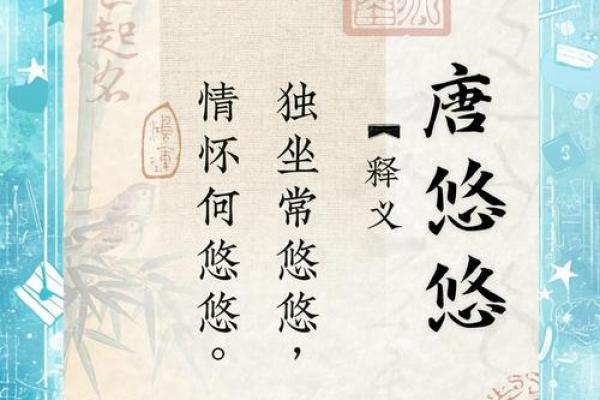 唐悠悠
【释义
独坐常悠悠，
情怀何悠悠。
起名